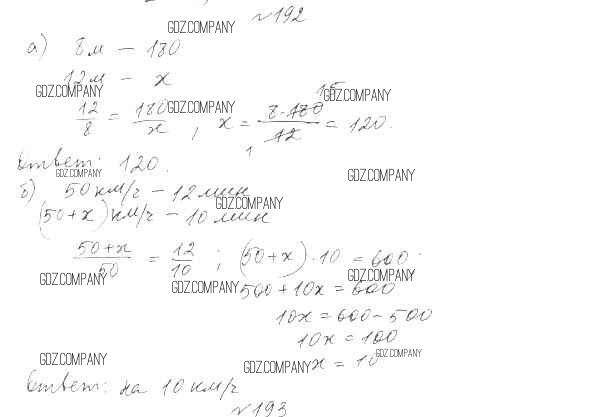 №192
GDZ.COMPANY
а) 8м — 180
12м — x
GDZ.COMPANY GDZ.COMPANY GDZ.COMPANY
12/8 = 180/x , x = 8·180/12 = 120.
15
1
Ответ: 120.
GDZ.COMPANY GDZ.COMPANY
б) 50 км/ч — 12 мин
GDZ.COMPANY
(50+x) км/ч — 10 мин
50+x/50 = 12/10 ; (50+x)·10 = 600
GDZ.COMPANY GDZ.COMPANY GDZ.COMPANY
500 + 10x = 600
10x = 600 - 500
10x = 100
GDZ.COMPANY GDZ.COMPANY GDZ.COMPANY
x = 10
Ответ: на 10 км/ч
№193